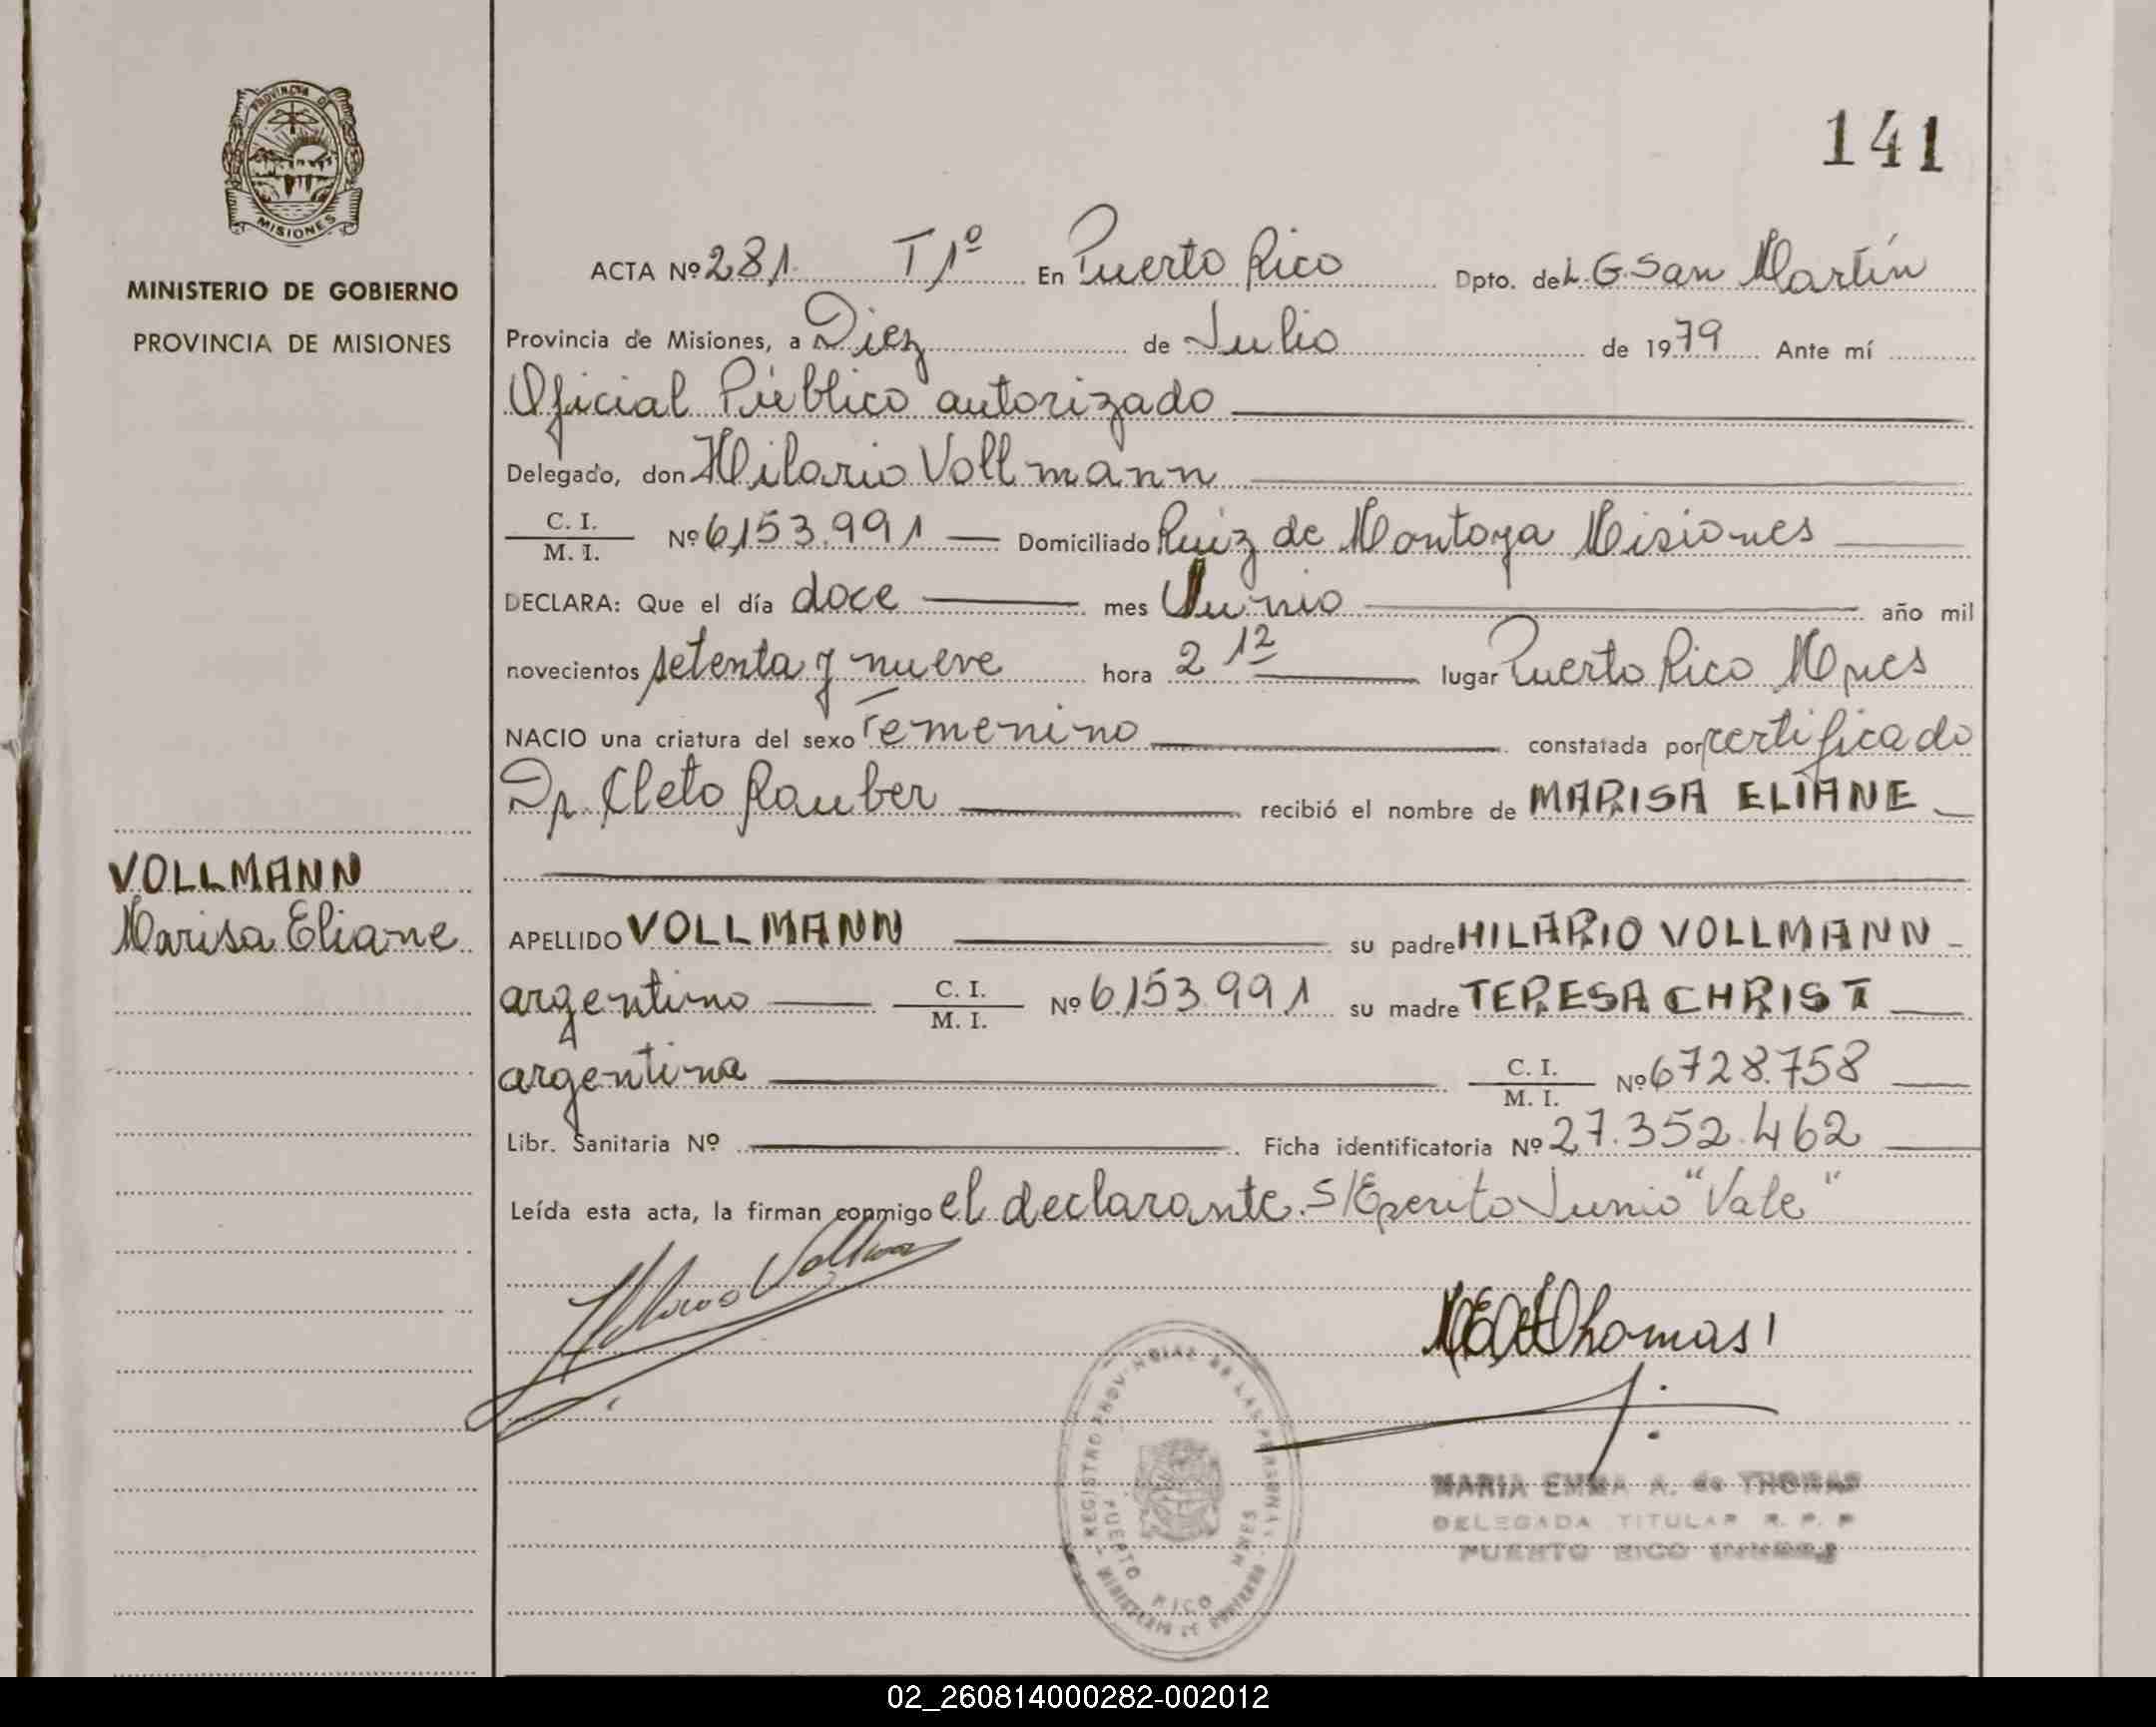 141
PROVINCIA DE
MISIONES
MINISTERIO DE GOBIERNO
PROVINCIA DE MISIONES
ACTA Nº 281 T 1º En Puerto Rico Dpto. de L. G. San Martín
Provincia de Misiones, a Diez de Julio de 1979 Ante mí
Oficial Público autorizado
Delegado, don Hilario Vollmann
C. I.
M. I. Nº 6.153.991 Domiciliado Ruiz de Montoya Misiones
DECLARA: Que el día doce mes Junio año mil
novecientos setenta y nueve hora 2 12 lugar Puerto Rico Mnes
NACIO una criatura del sexo Femenino constatada por certificado
Dr. Cleto Rauber recibió el nombre de MARISA ELIANE
VOLLMANN
Marisa Eliane
APELLIDO VOLLMANN su padre HILARIO VOLLMANN
argentino C. I.
M. I. Nº 6.153.991 su madre TERESA CHRIST
argentina C. I.
M. I. Nº 6728.758
Libr. Sanitaria Nº Ficha identificatoria Nº 27.352.462
Leída esta acta, la firman conmigo el declarante. S/Eperito Junio "Vale"
Hilario Vollmann
Thomas
REGISTRO PROVINCIAL DE LAS PERSONAS
PUERTO RICO MNES
MINISTERIO DE GOBIERNO
MARIA EMMA A. de THOMAS
DELEGADA TITULAR R. P. P
PUERTO RICO
02_260814000282-002012